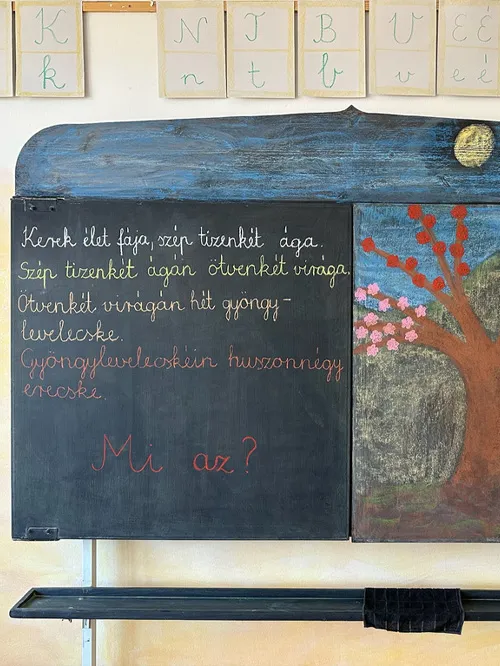 K N T B U É É
k n t b v e é
Kerek élet fája, szép tizenkét ága.
Szép tizenkét ágán ötvenkét virága.
Ötvenkét virágán hét gyöngy-
levelecske.
Gyöngylevelecskéin huszonnégy
erecske.
Mi az?